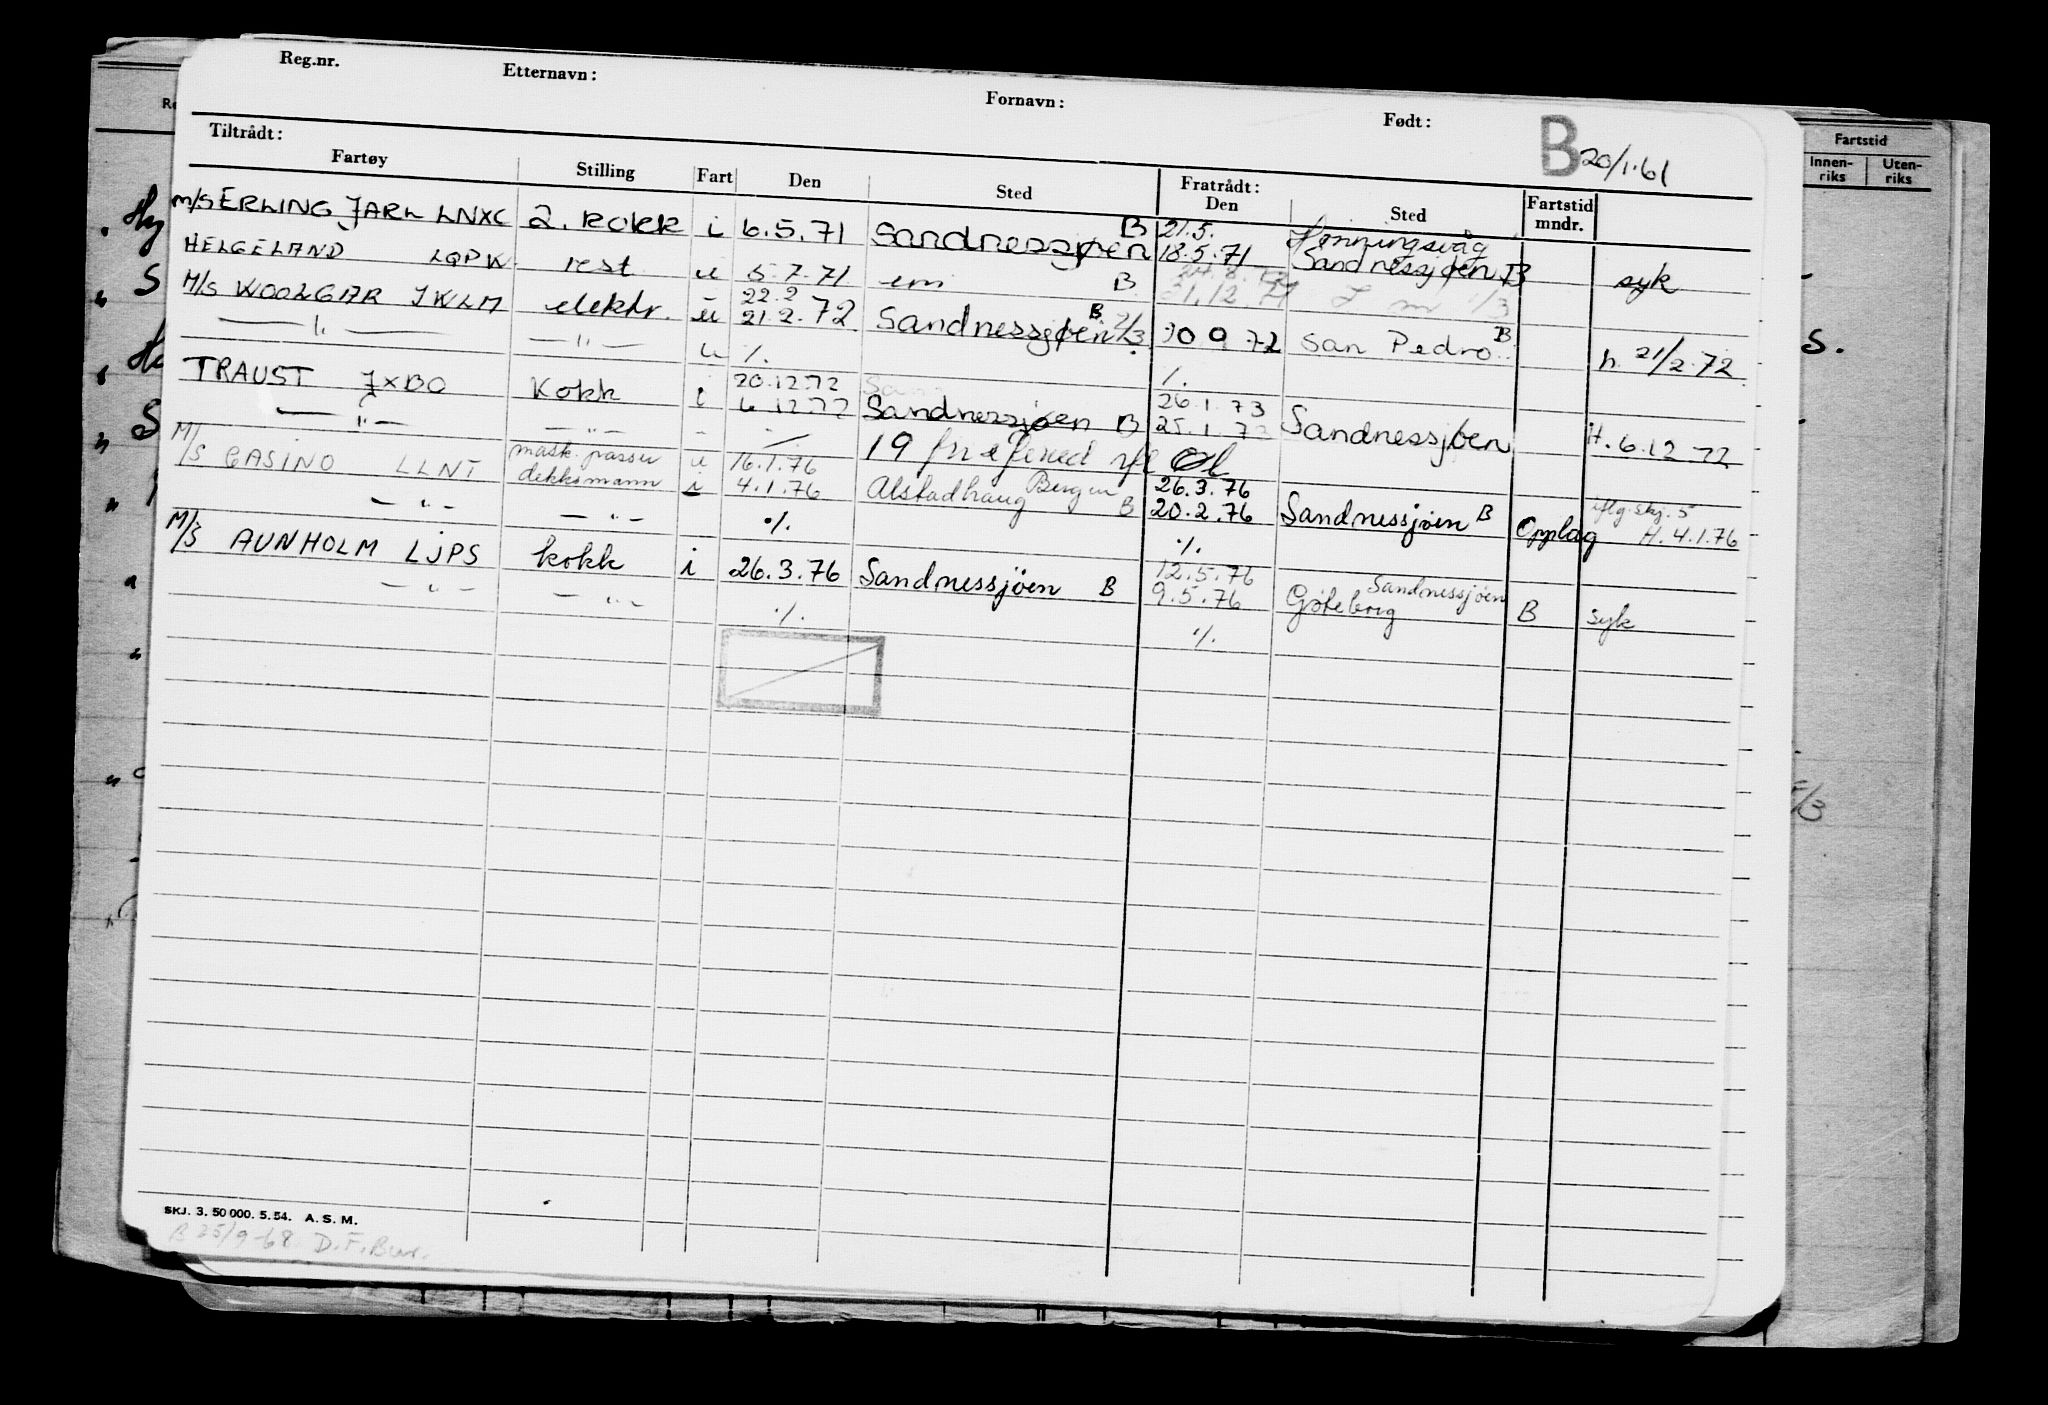 Reg.nr. Etternavn: Fornavn: Født:
B 20/1.61
Tiltrådt: Fratrådt: Fartstid
Fartøy Stilling Fart Den Sted Den Sted Fartstid mndr. Innen-riks Uten-riks
M/S ERLING JARL LNXC 2. Kokk i 6.5.71 Sandnessjøen B 21.5. 18.5.71 Honningsvåg Sandnessjøen B syk
HELGELAND LQPW rest u 5.7.71 em B 31.12.71
M/S WOOLGAR JWLM elektr. u 22.2 21.2.72 Sandnessjøen B 2/3 30 9 72 San Pedro B h. 21/2.72
— " — — " — u %. %.
TRAUST JXBO Kokk i 20.12.72 6.12.72 Sandnessjøen B 26.1.73 25.1.73 Sandnessjøen H. 6.12.72
— " — — " —
M/S CASINO LLNT mask. passer u 16.1.76 Bergen 26.3.76
dekksmann i 4.1.76 Alstadhaug B 20.2.76 Sandnessjøen B Opplag iflg. skj. 5 H. 4.1.76
— " — — " — %. %.
M/S AUNHOLM LJPS kokk i 26.3.76 Sandnessjöen B 12.5.76 9.5.76 Sandnessjöen Göteborg B syk
— " — — " — %. %.
SKJ. 3. 50 000. 5. 54. A. S. M.
B 25/9-68. D.F.Bur.